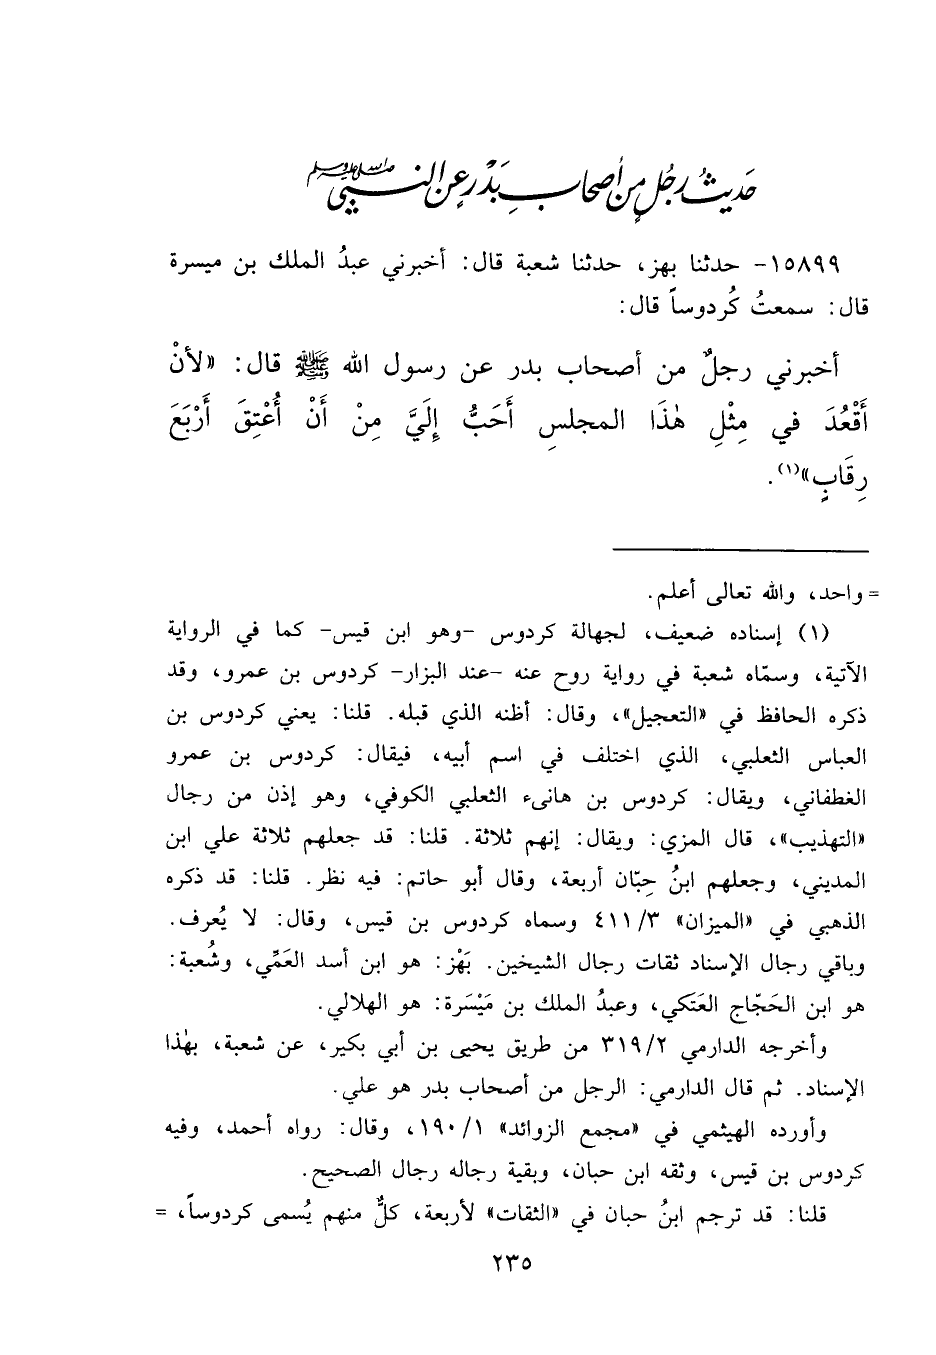 حَديثُ رَجُلٍ مِنْ أصحابِ بَدْرٍ عَنِ النَّبِيِّ صلى الله عليه وسلم
١٥٨٩٩- حدثنا بهز، حدثنا شعبة قال: أخبرني عبدُ الملك بن ميسرة
قال: سمعتُ كُردوساً قال:
أخبرني رجلٌ من أصحاب بدر عن رسول الله ﷺ قال: «لأنْ
أَقْعُدَ في مِثْلِ هٰذَا المجلسِ أَحَبُّ إلَيَّ مِنْ أَنْ أُعْتِقَ أَرْبَعَ
رِقَابٍ»(١).
= واحد، والله تعالى أعلم.
(١) إسناده ضعيف، لجهالة كردوس -وهو ابن قيس- كما في الرواية
الآتية، وسمّاه شعبة في رواية روح عنه -عند البزار- كردوس بن عمرو، وقد
ذكره الحافظ في «التعجيل»، وقال: أظنه الذي قبله. قلنا: يعني كردوس بن
العباس الثعلبي، الذي اختلف في اسم أبيه، فيقال: كردوس بن عمرو
الغطفاني، ويقال: كردوس بن هانىء الثعلبي الكوفي، وهو إذن من رجال
«التهذيب»، قال المزي: ويقال: إنهم ثلاثة. قلنا: قد جعلهم ثلاثة علي ابن
المديني، وجعلهم ابنُ حِبّان أربعة، وقال أبو حاتم: فيه نظر. قلنا: قد ذكره
الذهبي في «الميزان» ٤١١/٣ وسماه كردوس بن قيس، وقال: لا يُعرف.
وباقي رجال الإسناد ثقات رجال الشيخين. بَهْز: هو ابن أسد العَمِّي، وشُعبة:
هو ابن الحَجّاج العَتَكي، وعبدُ الملك بن مَيْسَرة: هو الهلالي.
وأخرجه الدارمي ٣١٩/٢ من طريق يحيى بن أبي بكير، عن شعبة، بهٰذا
الإسناد. ثم قال الدارمي: الرجل من أصحاب بدر هو علي.
وأورده الهيثمي في «مجمع الزوائد» ١٩٠/١، وقال: رواه أحمد، وفيه
كردوس بن قيس، وثقه ابن حبان، وبقية رجاله رجال الصحيح.
قلنا: قد ترجم ابنُ حبان في «الثقات» لأربعة، كلٌّ منهم يُسمى كردوساً، =
٢٣٥